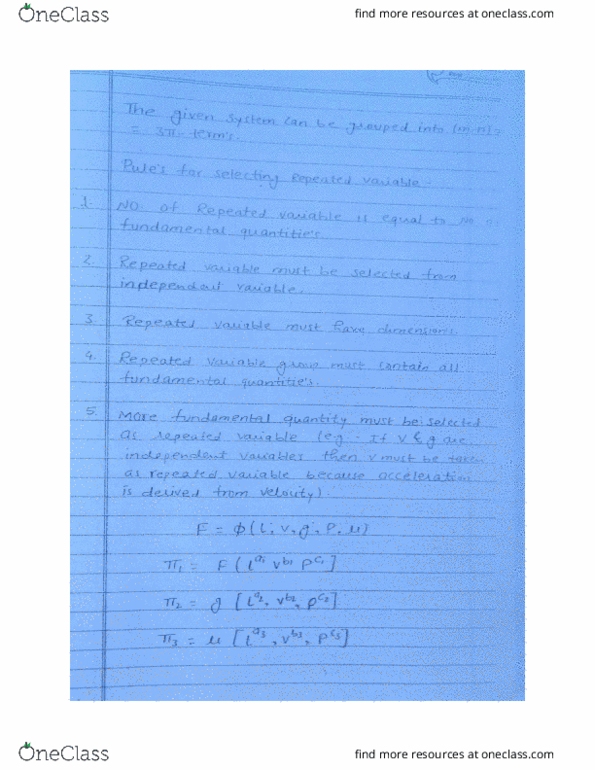 OneClass
find more resources at oneclass.com
The given system can be grouped into (m-n) =
= 3π- term's.
Rule's for selecting Repeated variable -
1. NO. of Repeated variable is equal to No
fundamental quantitie's
2. Repeated variable must be selected from
independent variable.
3. Repeated variable must have dimensions.
4. Repeated variable group must contain all
fundamental quantitie's.
5. More fundamental quantity must be selected
as repeated variable (eg - If V & g are
independent variables then V must be taken
as repeated variable because acceleration
is derived from velocity).
F = Φ(L, V, g, P, μ)
π₁ = F [L^a₁ V^b₁ P^c₁]
π₂ = g [L^a₂, V^b₂, P^c₂]
π₃ = μ [L^a₃, V^b₃, P^c₃]
OneClass
find more resources at oneclass.com